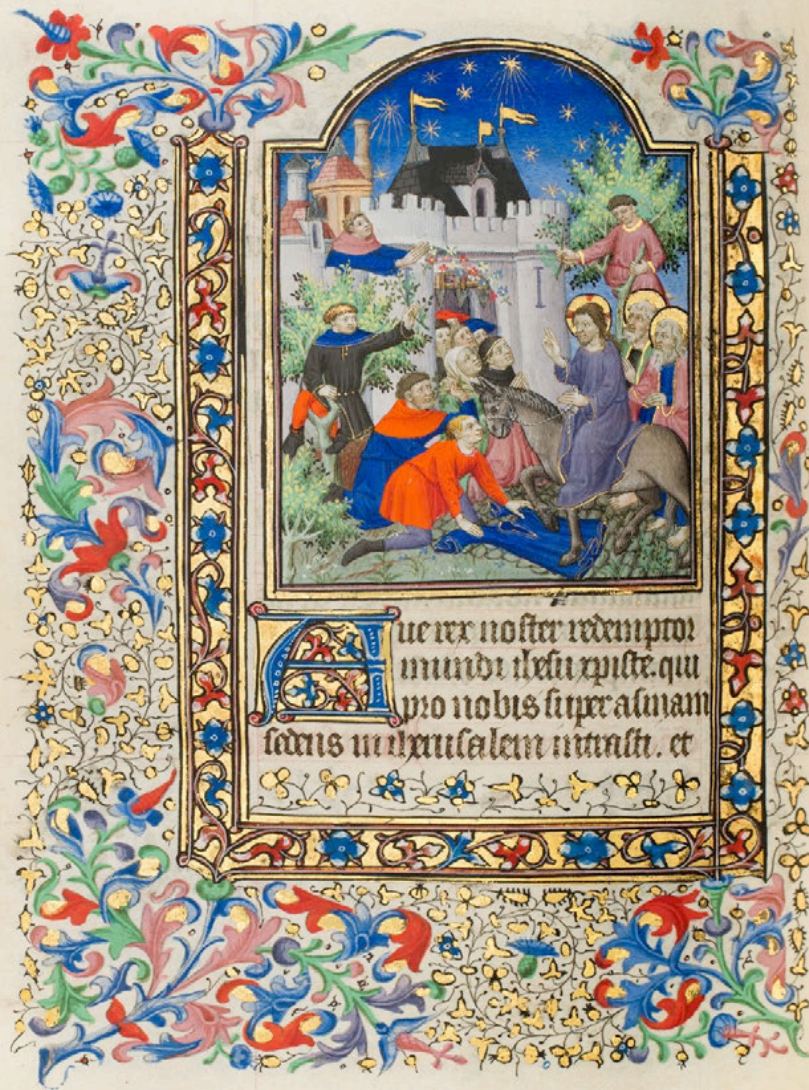 Aue rex noster redemptor
mundi ihesu xpiste. qui
pro nobis super asinam
sedens in iherusalem intrasti. et